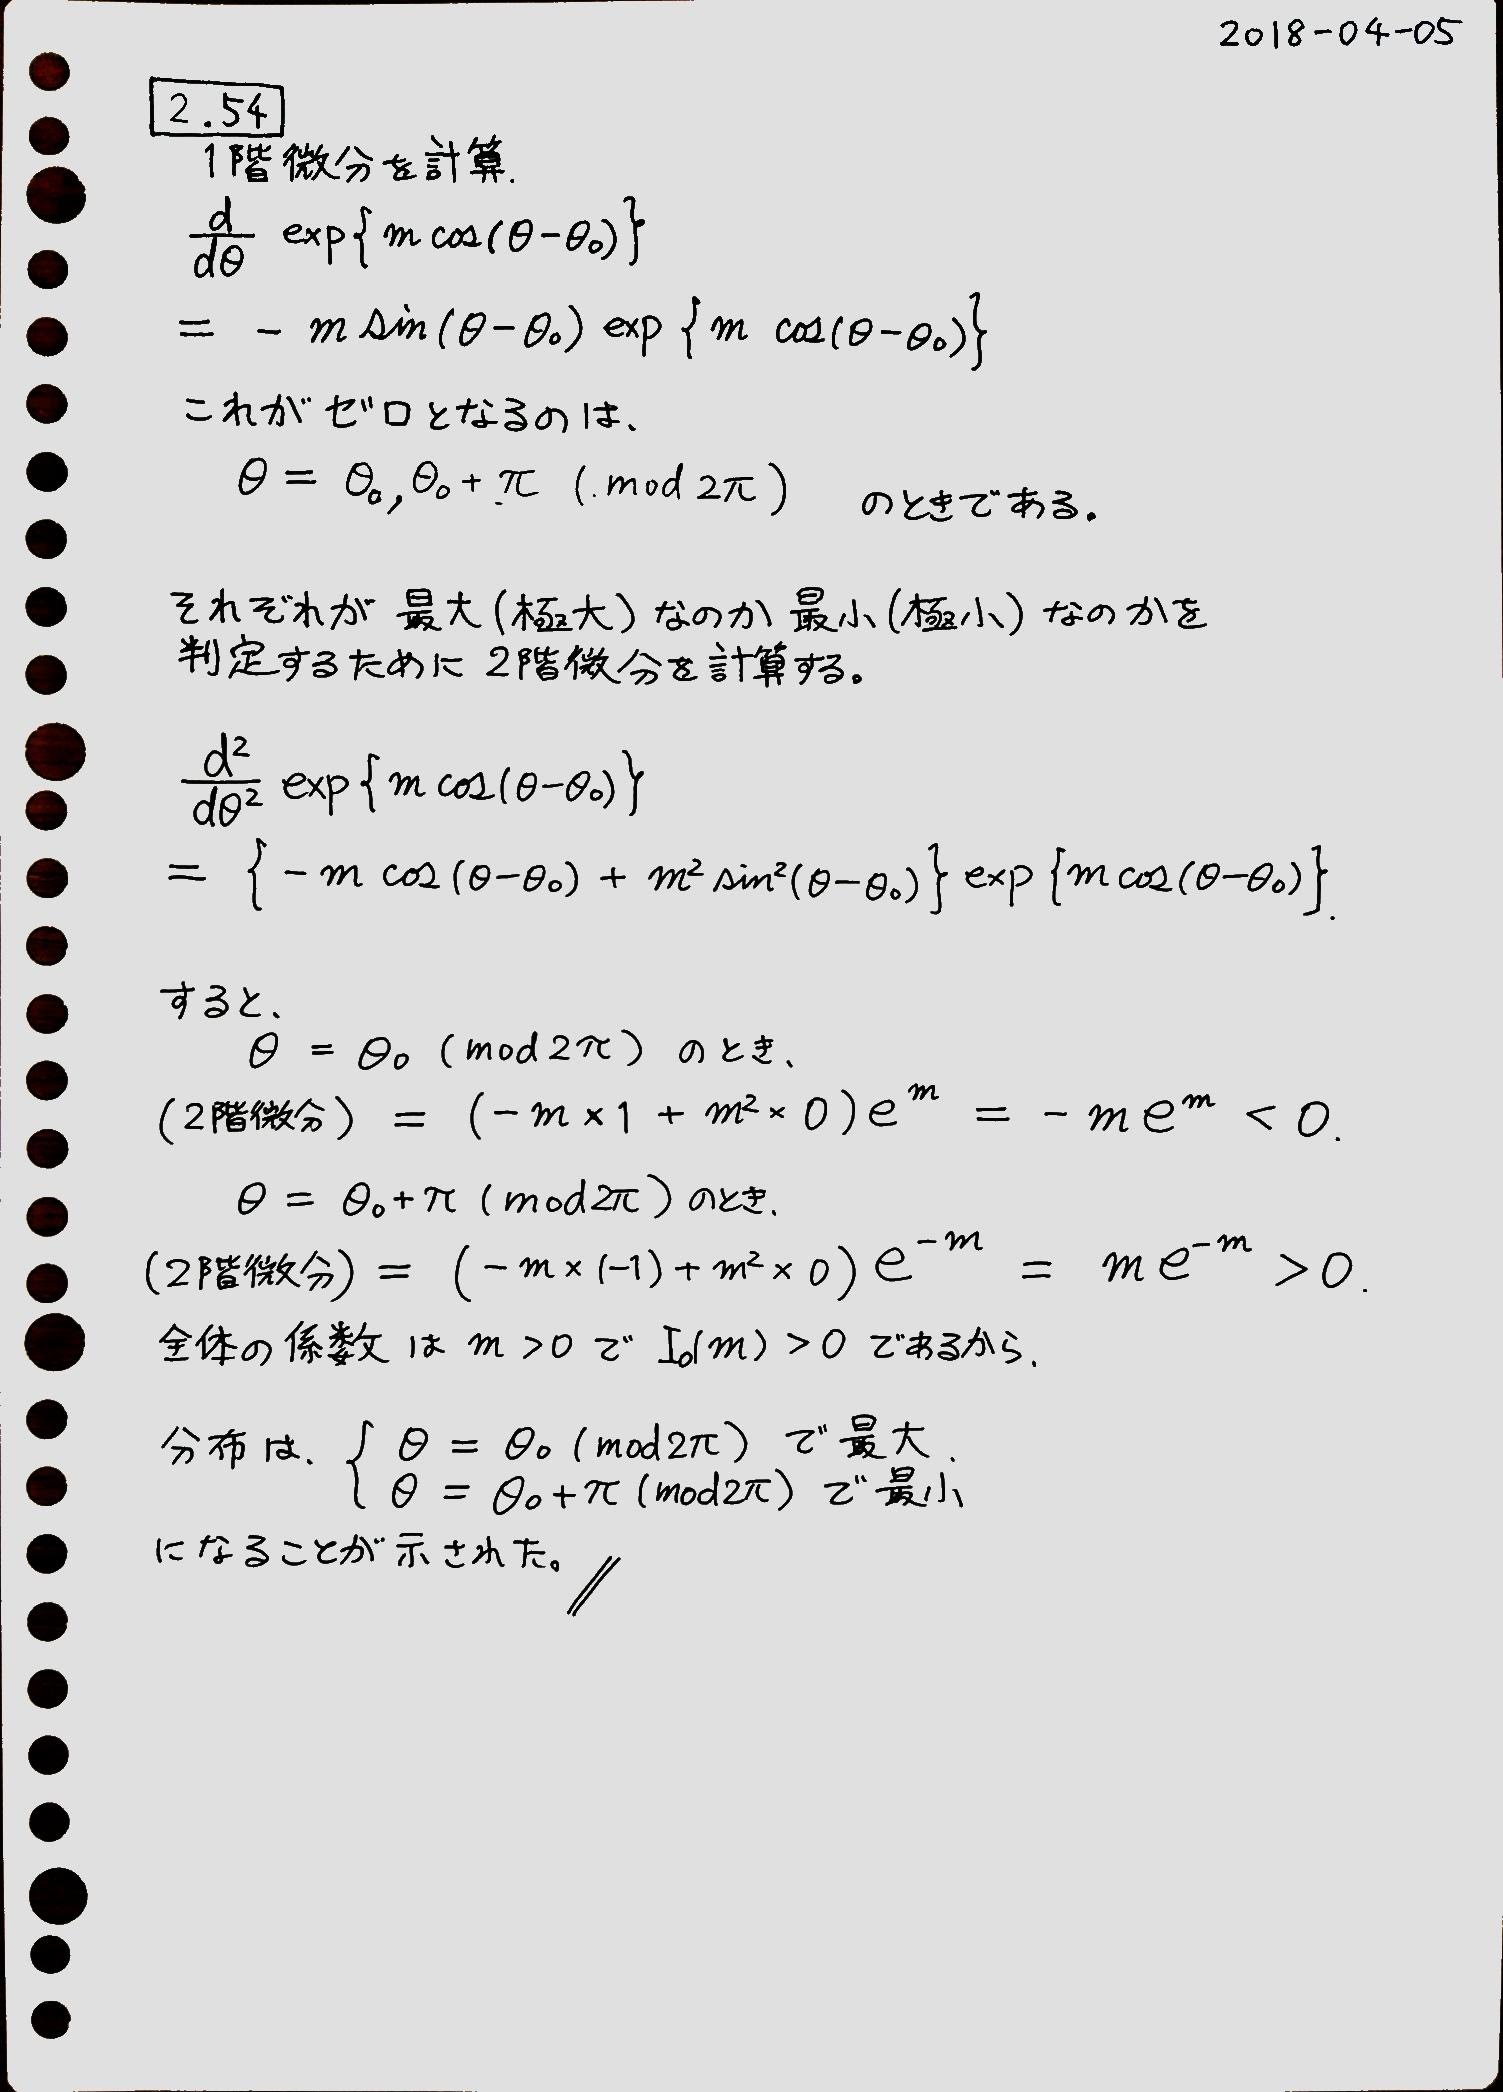 2018-04-05
2.54
1階微分を計算.
d/dθ exp{m cos(θ-θ₀)}
= - m sin(θ-θ₀) exp{m cos(θ-θ₀)}
これがゼロとなるのは、
θ = θ₀, θ₀+π (mod 2π) のときである。
それぞれが 最大(極大)なのか 最小(極小)なのかを
判定するために 2階微分を計算する。
d²/dθ² exp{m cos(θ-θ₀)}
= {-m cos(θ-θ₀) + m² sin²(θ-θ₀)} exp{m cos(θ-θ₀)}.
すると、
θ = θ₀ (mod 2π) のとき、
(2階微分) = (-m×1 + m²×0)e^m = -me^m < 0.
θ = θ₀+π (mod 2π) のとき、
(2階微分) = (-m×(-1)+m²×0)e^-m = me^-m > 0.
全体の係数は m>0 で I₀(m)>0 であるから、
分布は、{ θ = θ₀ (mod 2π) で最大、
θ = θ₀+π (mod 2π) で最小
になることが示された。//